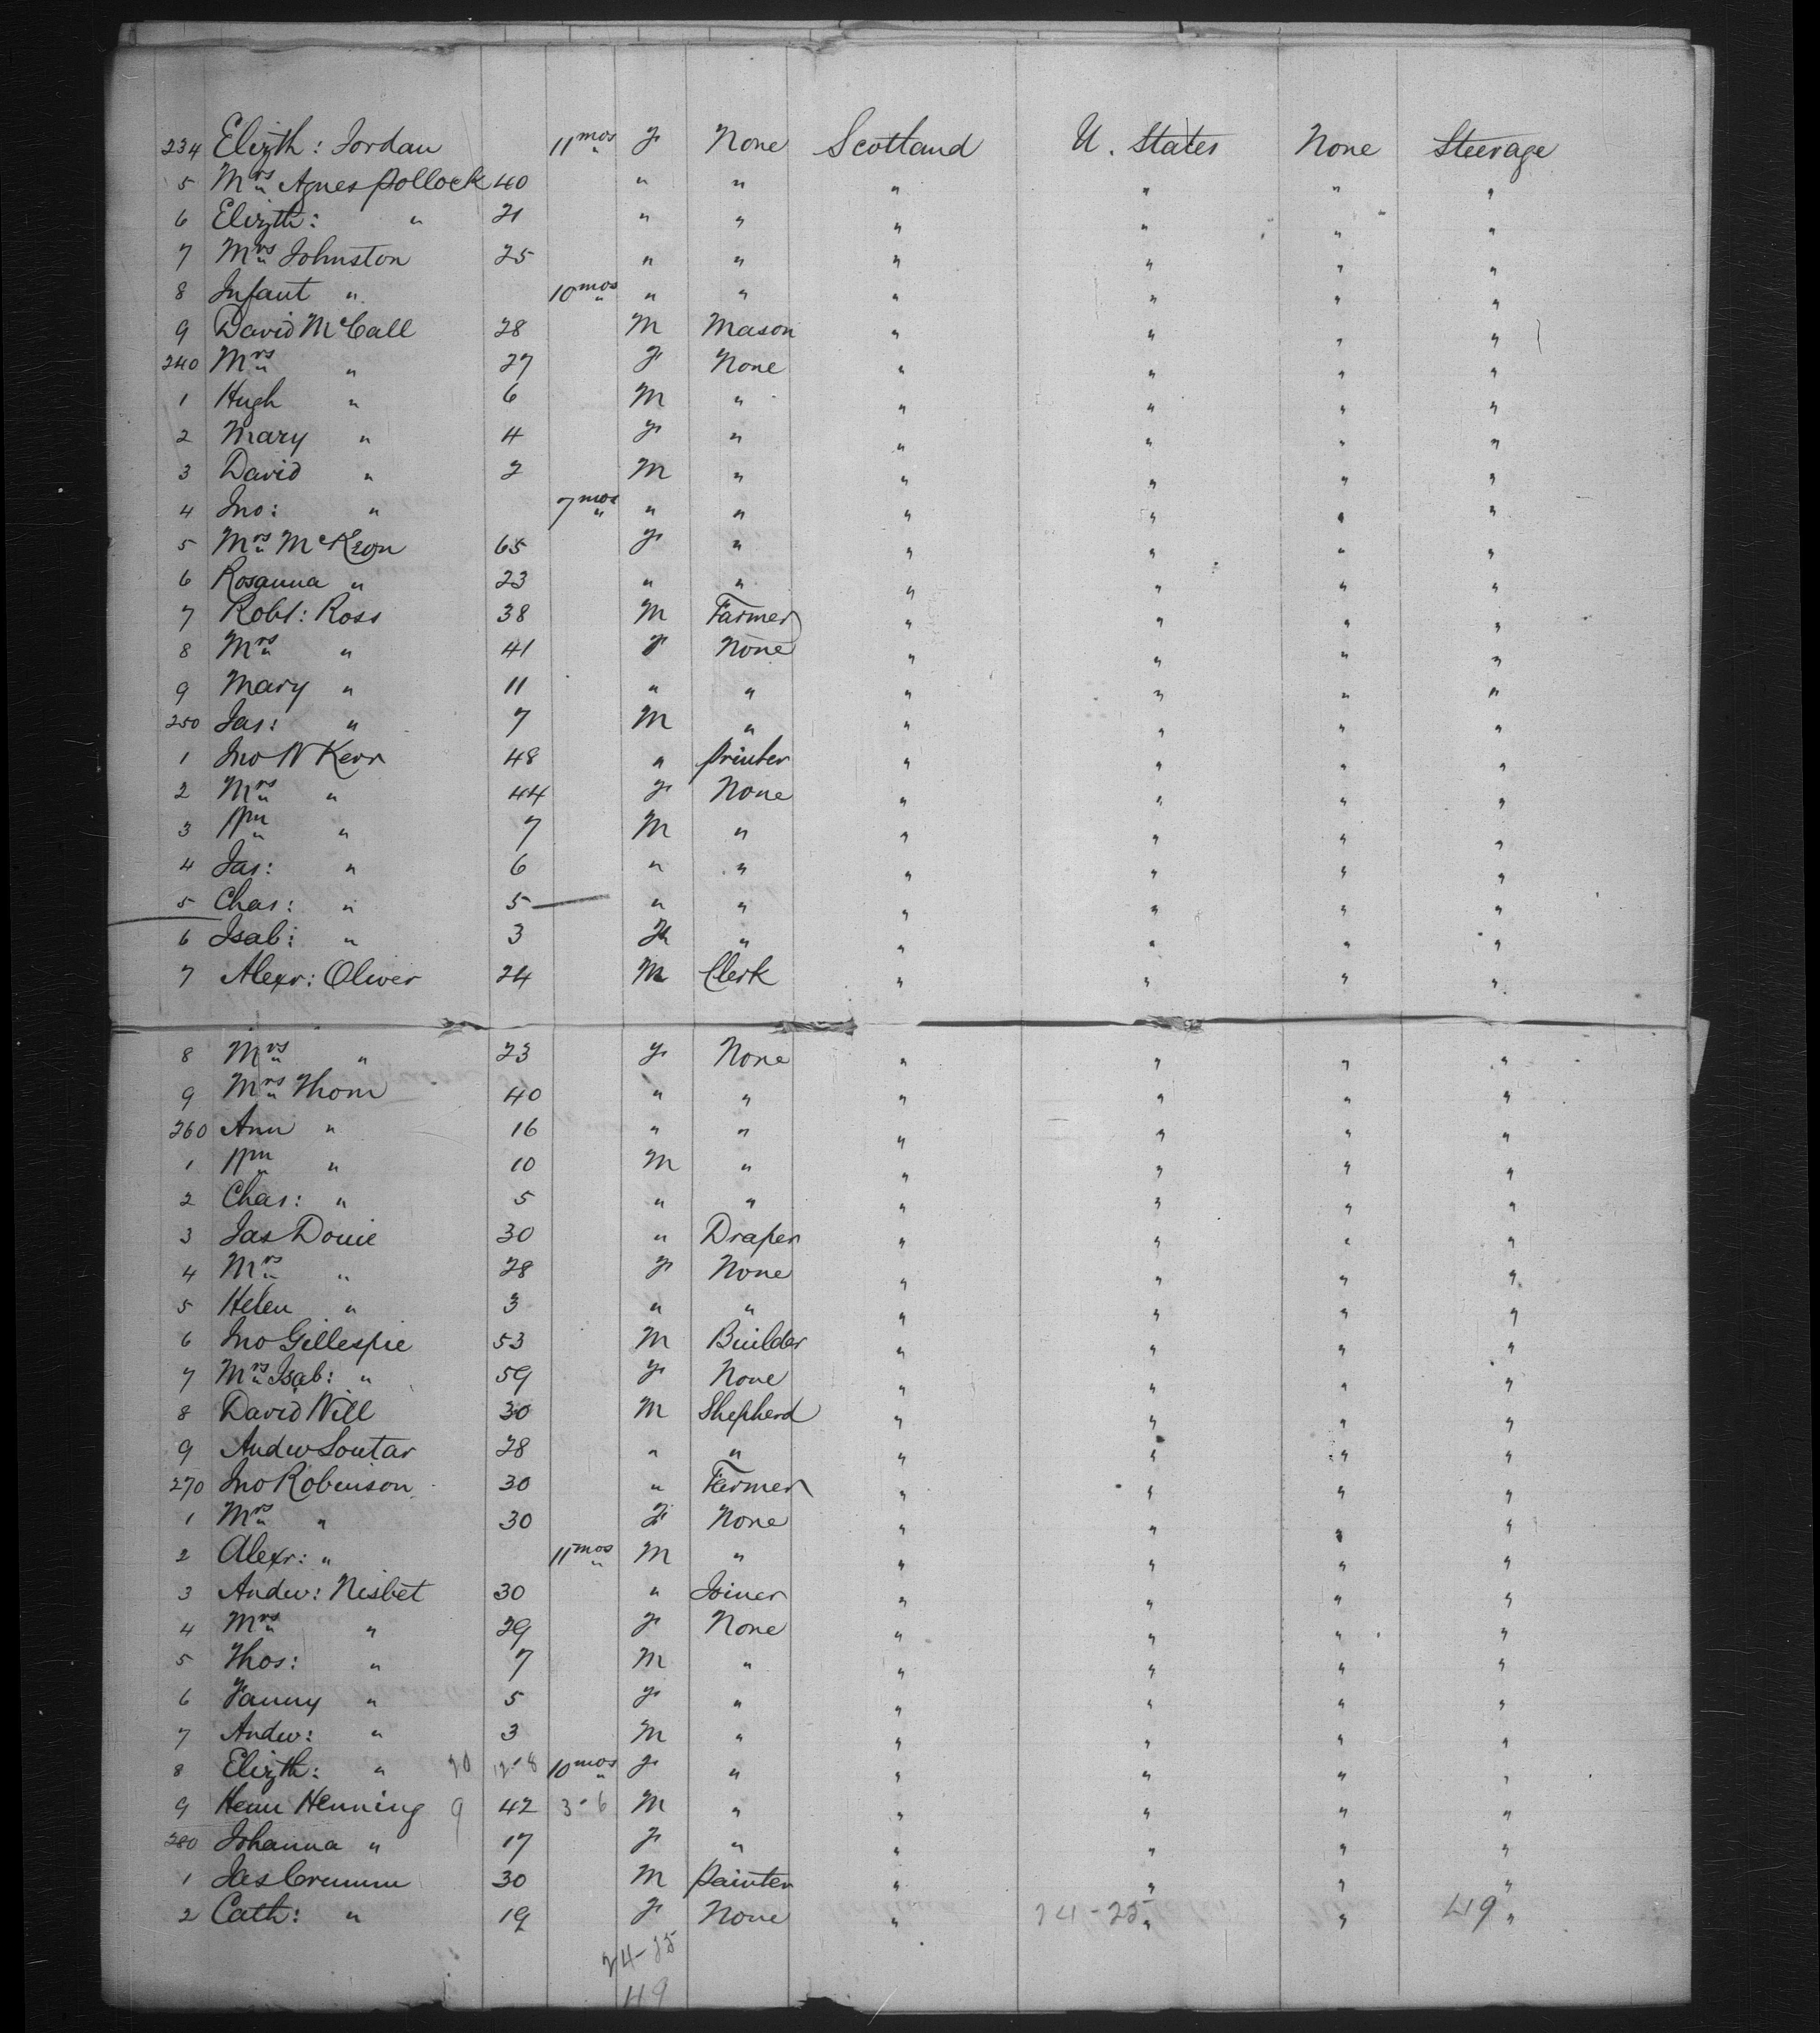 234 Elizth: Jordan 11 mos F None Scotland U. States None Steerage
5 Mrs Agnes Pollock 40 " " " " " "
6 Elizth: " 21 " " " " " "
7 Mrs Johnston 25 " " " " " "
8 Infant " 10 mos " " " " " "
9 David McCall 28 M Mason " " " "
240 Mrs " 27 F None " " " "
1 Hugh " 6 M " " " " "
2 Mary " 4 F " " " " "
3 David " 2 M " " " " "
4 Jno: " 7 mos " " " " " "
5 Mrs McKeon 65 F " " " " "
6 Rosanna " 23 " " " " " "
7 Robt: Ross 38 M Farmer " " " "
8 Mrs " 41 F None " " " "
9 Mary " 11 " " " " " "
250 Jas: " 7 M " " " " "
1 Jno W Kerr 48 " Printer " " " "
2 Mrs " 44 F None " " " "
3 Wm " 7 M " " " " "
4 Jas: " 6 " " " " " "
5 Chas: " 5 " " " " " "
6 Isab: " 3 F " " " " "
7 Alexr: Oliver 24 M Clerk " " " "
8 Mrs " 23 F None " " " "
9 Mrs Thom 40 " " " " " "
260 Ann " 16 " " " " " "
1 Wm " 10 M " " " " "
2 Chas: " 5 " " " " " "
3 Jas Douie 30 " Draper " " " "
4 Mrs " 28 F None " " " "
5 Helen " 3 " " " " " "
6 Jno Gillespie 53 M Builder " " " "
7 Mrs Isab: " 59 F None " " " "
8 David Will 30 M Shepherd " " " "
9 Andw Soutar 28 " " " " " "
270 Jno Robinson 30 " Farmer " " " "
1 Mrs " 30 F None " " " "
2 Alexr: " 11 mos M " " " " "
3 Andw: Nisbet 30 " Joiner " " " "
4 Mrs " 29 F None " " " "
5 Thos: " 7 M " " " " "
6 Fanny " 5 F " " " " "
7 Andw: " 3 M " " " " "
8 Elizth: " 20 12-8 10 mos F " " " " "
9 Henning 9 42 3-6 M " " " " "
280 Johanna " 17 F " " " " "
1 Jas 30 M Painter " " " "
2 Cath: " 19 F None " 24-25 " " 49 "
24-25
49